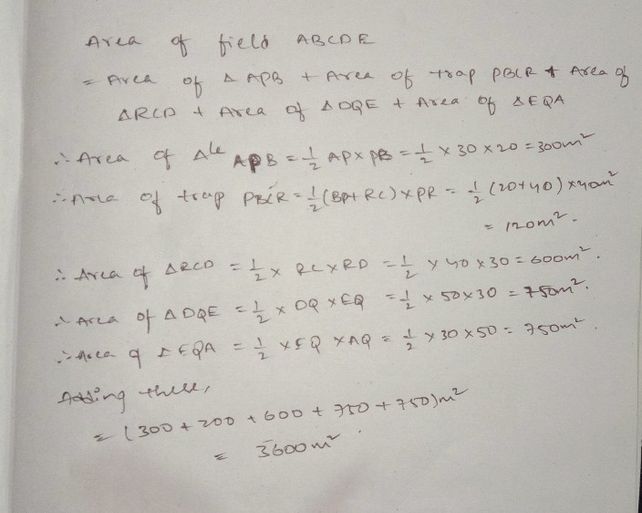 Area of field ABCDE
= Area of Δ APB + Area of trap PBCR + Area of
ΔRCD + Area of ΔDQE + Area of ΔEQA
∴ Area of Δle APB = 1/2 AP × PB = 1/2 × 30 × 20 = 300m²
∴ Area of trap PBCR = 1/2 (BP + RC) × PR = 1/2 (20+40) × 40m²
= 120m².
∴ Area of ΔRCD = 1/2 × RC × RD = 1/2 × 40 × 30 = 600m².
∴ Area of ΔDQE = 1/2 × DQ × EQ = 1/2 × 50×30 = 750m².
∴ Area of ΔEQA = 1/2 × EQ × AQ = 1/2 × 30 × 50 = 750m².
Adding these,
= (300 + 200 + 600 + 750 + 750)m²
= 3600m².